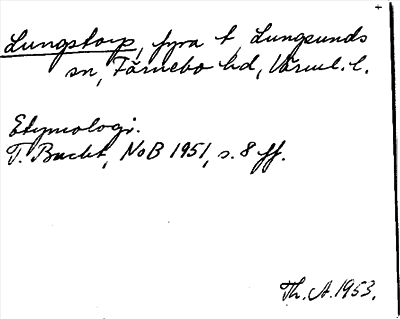 Lungstorp, fyra t, Lungsunds
sn, Färnebo hd, Värml. l.
Etymologi.
T. Bucht, NoB 1951, s. 8 ff.
Th. A. 1953.